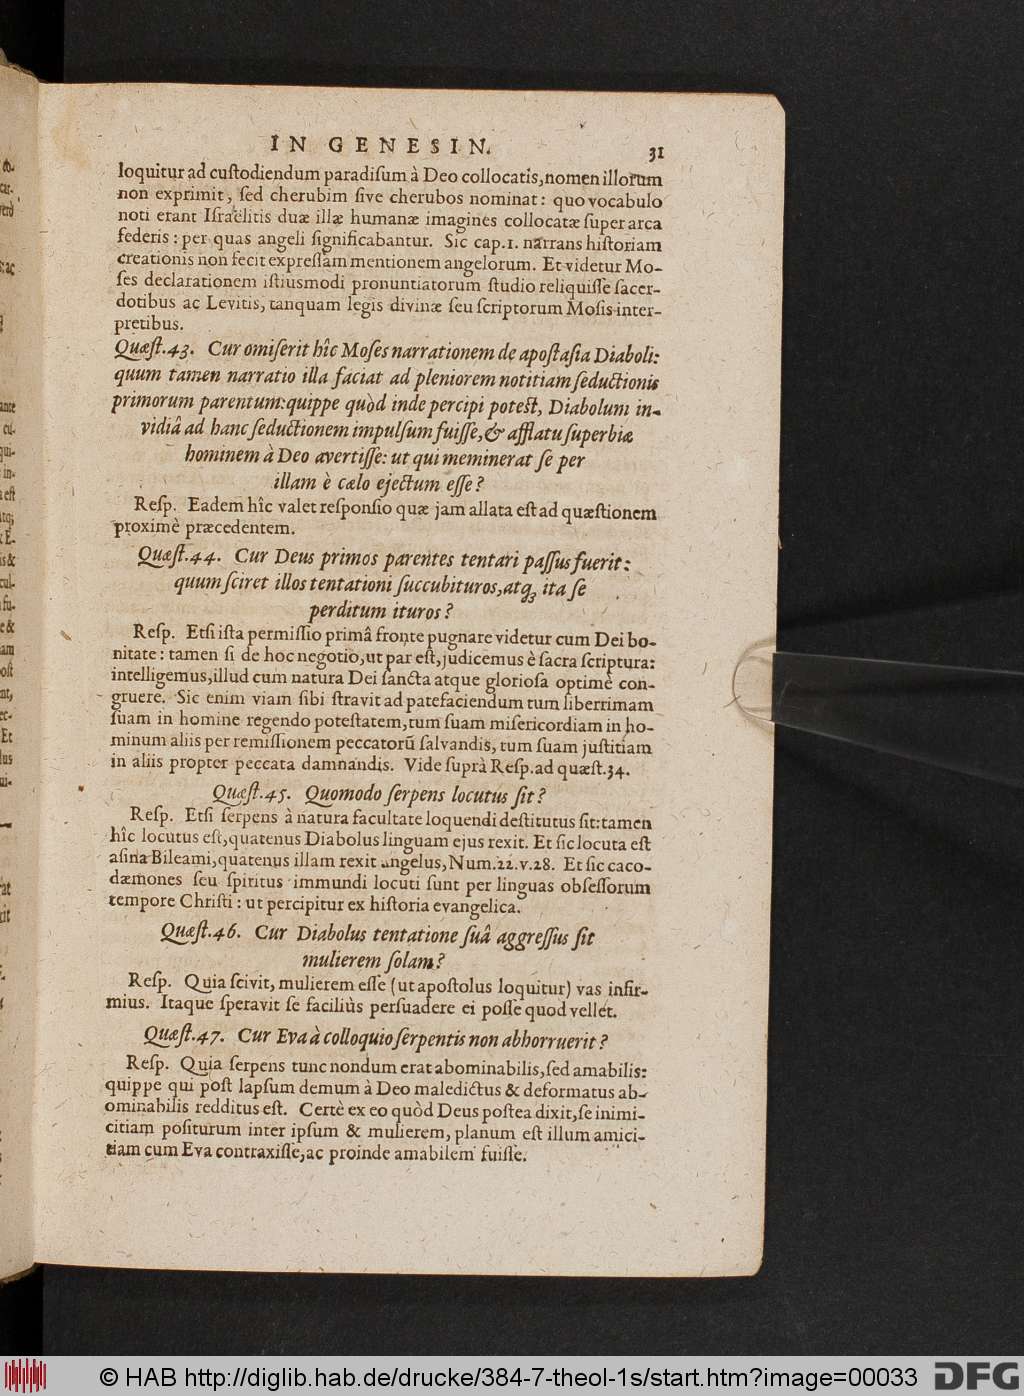 IN GENESIN. 31
loquitur ad custodiendum paradisum à Deo collocatis, nomen illorum
non exprimit, sed cherubim sive cherubos nominat: quo vocabulo
noti erant Israëlitis duæ illæ humanæ imagines collocatæ super arca
federis: per quas angeli significabantur. Sic cap.1. narrans historiam
creationis non fecit expressam mentionem angelorum. Et videtur Mo-
ses declarationem istiusmodi pronuntiatorum studio reliquisse sacer-
dotibus ac Levitis, tanquam legis divinæ seu scriptorum Mosis inter-
pretibus.
Quæst.43. Cur omiserit hîc Moses narrationem de apostasia Diaboli:
quum tamen narratio illa faciat ad pleniorem notitiam seductionis
primorum parentum: quippe quòd inde percipi potest, Diabolum in-
vidiâ ad hanc seductionem impulsum fuisse, & afflatu superbiæ
hominem à Deo avertisse: ut qui meminerat se per
illam è cælo ejectum esse?
Resp. Eadem hîc valet responsio quæ jam allata est ad quæstionem
proximè præcedentem.
Quæst.44. Cur Deus primos parentes tentari passus fuerit:
quum sciret illos tentationi succubituros, atq; ita se
perditum ituros?
Resp. Etsi ista permissio primâ fronte pugnare videtur cum Dei bo-
nitate: tamen si de hoc negotio, ut par est, judicemus è sacra scriptura:
intelligemus, illud cum natura Dei sancta atque gloriosa optimè con-
gruere. Sic enim viam sibi stravit ad patefaciendum tum liberrimam
suam in homine regendo potestatem, tum suam misericordiam in ho-
minum aliis per remissionem peccatorũ salvandis, tum suam justitiam
in aliis propter peccata damnandis. Vide suprà Resp. ad quæst.34.
Quæst.45. Quomodo serpens locutus sit?
Resp. Etsi serpens à natura facultate loquendi destitutus sit: tamen
hîc locutus est, quatenus Diabolus linguam ejus rexit. Et sic locuta est
asina Bileami, quatenus illam rexit angelus, Num.22.v.28. Et sic caco-
dæmones seu spiritus immundi locuti sunt per linguas obsessorum
tempore Christi: ut percipitur ex historia evangelica.
Quæst.46. Cur Diabolus tentatione suâ aggressus sit
mulierem solam?
Resp. Quia scivit, mulierem esse (ut apostolus loquitur) vas infir-
mius. Itaque speravit se faciliùs persuadere ei posse quod vellet.
Quæst.47. Cur Eva à colloquio serpentis non abhorruerit?
Resp. Quia serpens tunc nondum erat abominabilis, sed amabilis:
quippe qui post lapsum demum à Deo maledictus & deformatus ab-
ominabilis redditus est. Certè ex eo quòd Deus postea dixit, se inimi-
citiam positurum inter ipsum & mulierem, planum est illum amici-
tiam cum Eva contraxisse, ac proinde amabilem fuisse.
© HAB http://diglib.hab.de/drucke/384-7-theol-1s/start.htm?image=00033
DFG